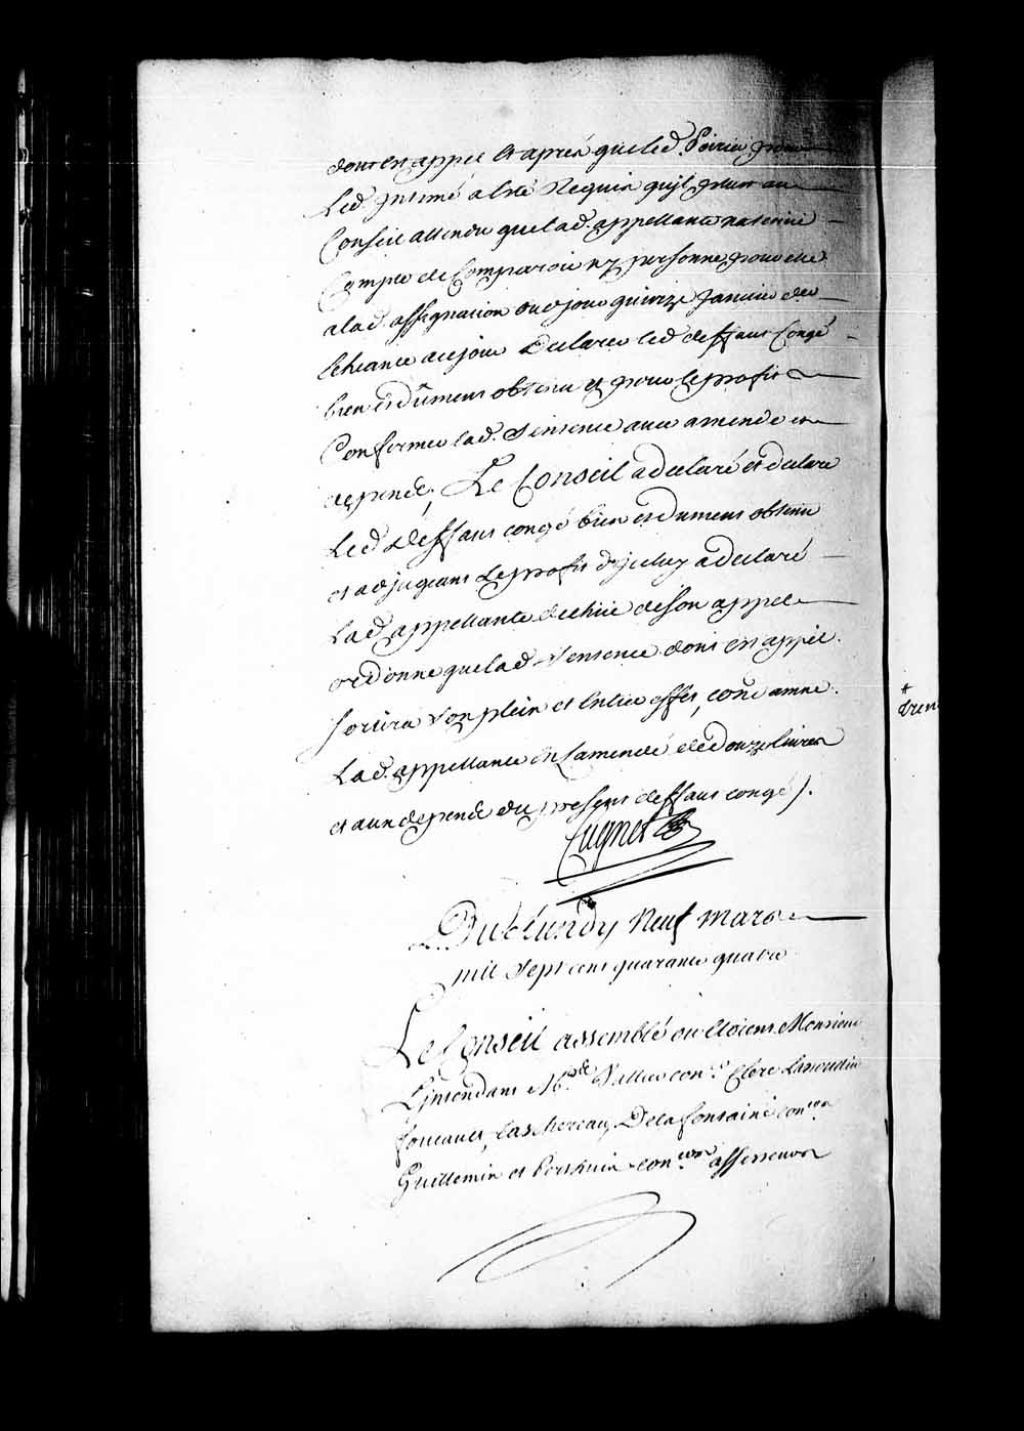 dont est appel Et aprés que led. Poirier pour
Led Intimé a Eté Requis quil plut au
Conseil attendu que lad. appellante na tenue
Compte de Comparoir ny personne pour elle
a lad. assignation dud jour quinze Janvier der
Echeance a ce jour Declarer led deffaut Congé
bien et dûment obtenu et pour le profit
Confirmer lad. Sentence avec amende et
depends, Le Conseil a declaré et declare
Led deffaut congé bien et dument obtenu
et adjugeant Le profit d'jceluy a declaré
Lad appellante dechüe de son appel
ordonne que lad Sentence dont est appel.
Sortira Son plein et Entier effet, condamne.
Lad. appellante En Lamende de douze livres
et aux depends du present deffaut congé /.
Cugnet
Du Lundy Neuf mars
mil Sept cent quarante quatre
Le Conseil assemblé ou Etoient Monsieur
L'jntendant Mrs de Vallier conr. Clerc
foucault, Taschereau, De la fontaine coners
Guillemin et Perthuis coners assesseurs
*
tren